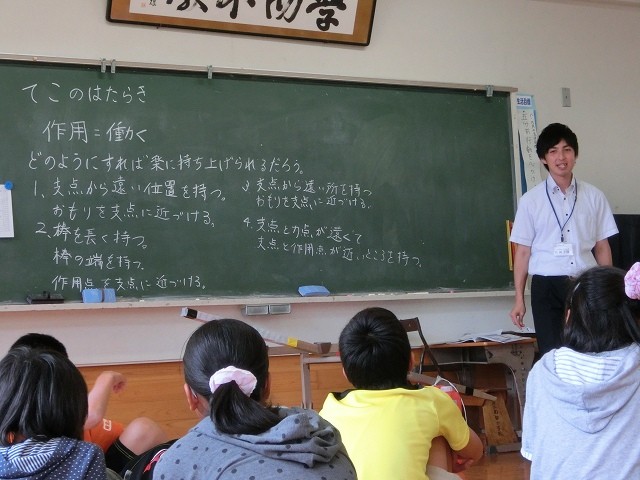 てこのはたらき
作用=働く
どのようにすれば楽に持ち上げられるだろう。
1、支点から遠い位置を持つ。
おもりを支点に近づける。
2、棒を長く持つ。
棒の端を持つ。
作用点を支点に近づける。
3 支点から遠い所を持つ
おもりを支点に近づける。
4、支点と力点が遠くて
支点と作用点が近いところを持つ。
生活目標